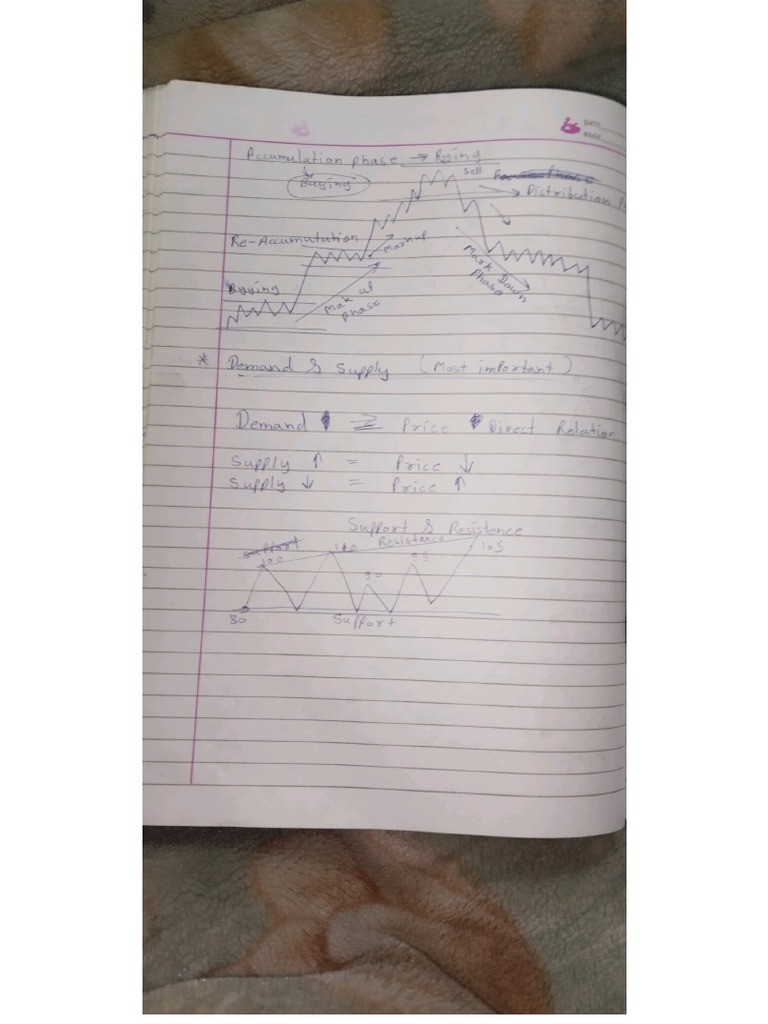 DATE
PAGE
Accumulation phase → Bying
Buying
Sell
→ Distribution
Re-Accumutation
Markup
Buying
Mak up
phase
Mark Down
Phase
* Demand & Supply (Most important)
Demand = Price Direct Relation
Supply ↑ = Price ↓
Supply ↓ = Price ↑
Support & Resistence
support
Resistence
100
100
90
95
105
80
Support